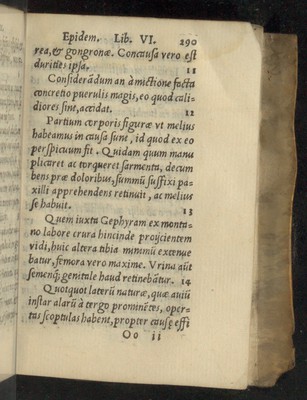 Epidem. Lib. VI. 290
rea, & gongronæ. Concausa vero est
durities ipsa. 11
Considerãdum an à mictione facta
concretio puerulis magis, eo quod cali-
diores sint, accidat. 12
Partium corporis figuræ ut melius
habeamus in causa sunt, id quod ex eo
perspicuum fit. Quidam quum manu
plicaret ac torqueret sarmenta, decum
bens præ doloribus, summũ suffixi pa-
xilli apprehendens retinuit, ac melius
se habuit. 13
Quem iuxta Gephyram ex monta-
no labore crura hincinde proijcientem
vidi, huic altera tibia minimũ extenue
batur, femora vero maxime. Vrina aũt
semenq; genitale haud retinebãtur. 14
Quotquot laterũ naturæ, quæ auiũ
instar alarũ à tergo prominẽtes, oper-
tas scoptulas habent, propter causę effi
Oo ii